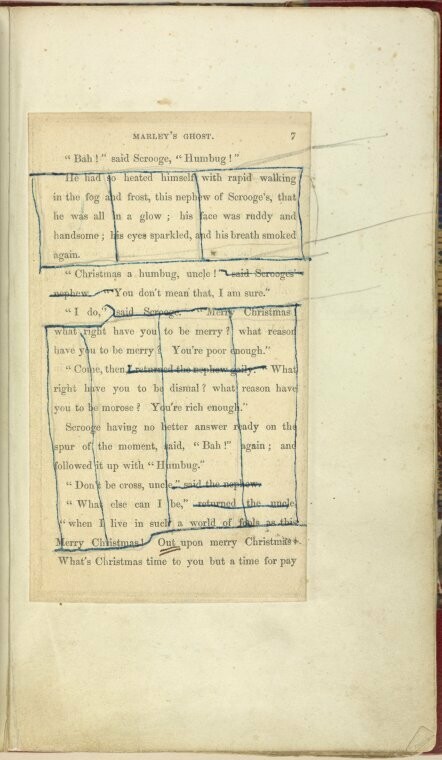 MARLEY'S GHOST. 7
"Bah!" said Scrooge, "Humbug!"
He had so heated himself with rapid walking
in the fog and frost, this nephew of Scrooge's, that
he was all in a glow; his face was ruddy and
handsome; his eyes sparkled, and his breath smoked
again.
"Christmas a humbug, uncle!" said Scrooge's
nephew. "You don't mean that, I am sure."
"I do," said Scrooge. "Merry Christmas!
what right have you to be merry? what reason
have you to be merry? You're poor enough."
"Come, then," returned the nephew gaily. "What
right have you to be dismal? what reason have
you to be morose? You're rich enough."
Scrooge having no better answer ready on the
spur of the moment, said, "Bah!" again; and
followed it up with "Humbug."
"Don't be cross, uncle," said the nephew.
"What else can I be," returned the uncle,
"when I live in such a world of fools as this?
Merry Christmas! Out upon merry Christmas!
What's Christmas time to you but a time for pay